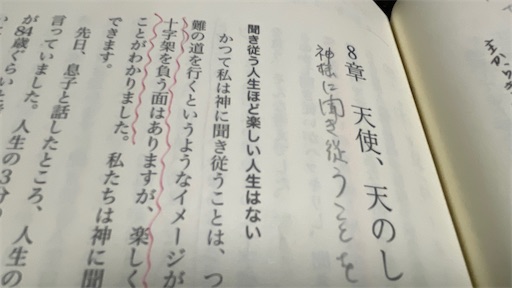 8章 天使、天のし
神様に聞き従うことを
聞き従う人生ほど楽しい人生はない
かつて私は神に聞き従うことは、つ
難の道を行くというようなイメージが
十字架を負う面はありますが、楽しく
ことがわかりました。 私たちは神に聞
できます。
先日、息子と話したところ、人生の
言っていました。人生の3分の
が84歳ぐらい